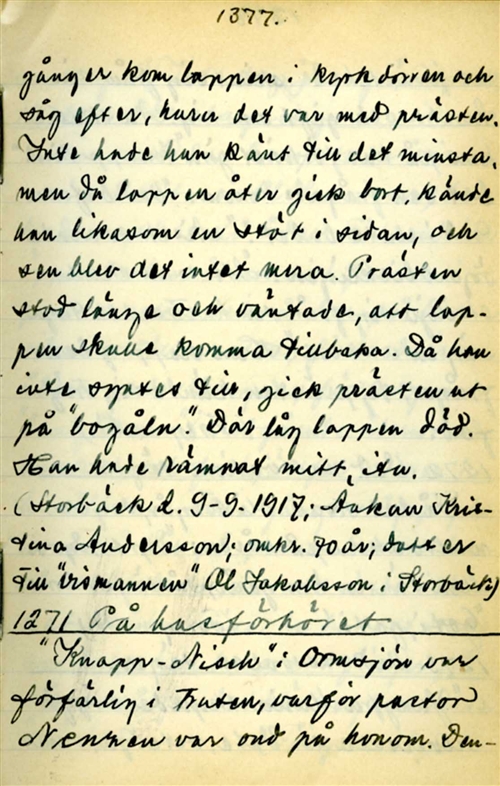 1377.
gånger kom lappen i kyrkdörren och
såg efter, huru det var med prästen.
Inte hade han känt till det minsta,
men då lappen åter gick bort, kände
han likasom en stöt i sidan, och
sen blev det intet mera. Prästen
stod länge och väntade, att lap-
pen skulle komma tillbaka. Då han
inte syntes till, gick prästen ut
på "bogåln". Där låg lappen död.
Han hade rämnat mitt itu.
(Storbäck d. 9-9-1917; Änkan Kris-
tina Andersson; omkr. 70 år; dotter
till "vismannen" Ol Jakobsson i Storbäck)
1271 På husförhöret
"Knapp-Nisch" i Ormsjön var
förfärlig i truten, varför pastor
Nenzen var ond på honom. Den-